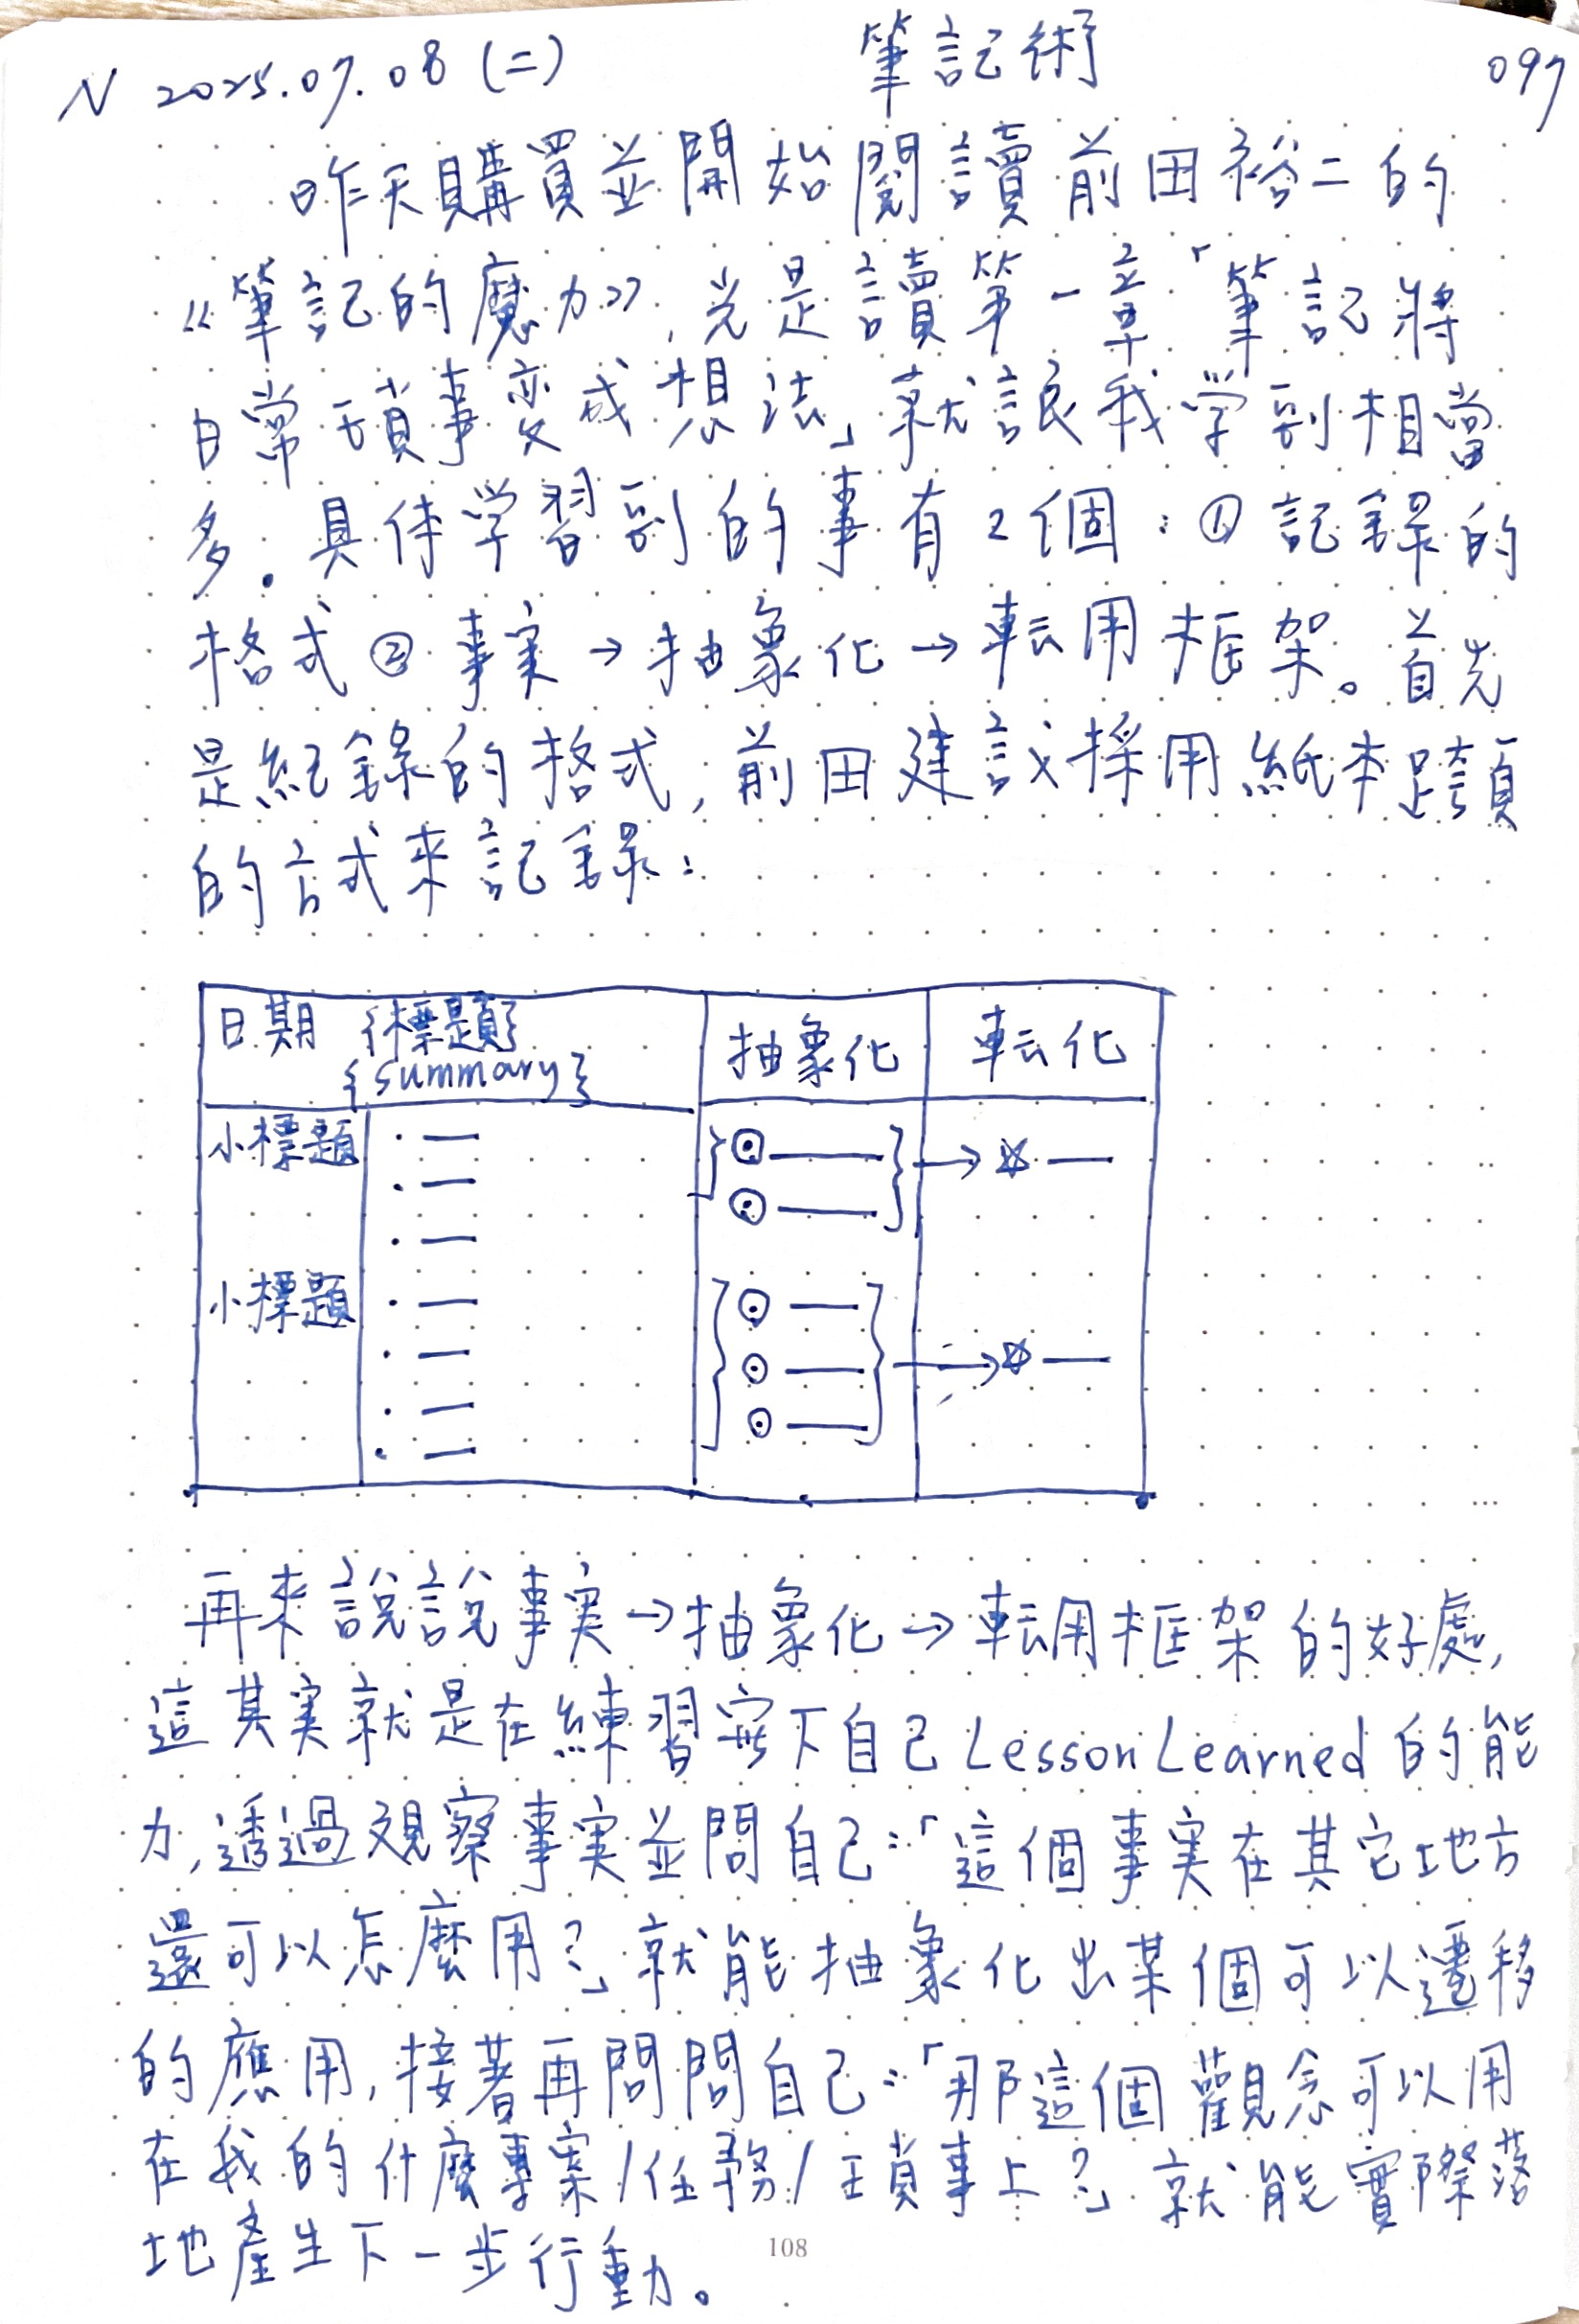 N 2025.07.08 (二) 筆記術 097
昨天購買並開始閱讀前田裕二的
《筆記的魔力》,光是讀第一章「筆記將
日常瑣事变成想法」就讓我学到相當
多。具体学習到的事有2個：① 記錄的
格式 ② 事実→抽象化→転用框架。首先
是紀錄的格式,前田建議採用紙本跨頁
的方式來記錄：
日期 {標題} 抽象化 転化
{summary}
小標題
小標題
再來說說事実→抽象化→転用框架的好處,
這其実就是在練習寫下自己 Lesson Learned 的能
力,透過观察事実並問自己：「這個事実在其它地方
還可以怎麼用?」就能抽象化出某個可以遷移
的應用,接著再問問自己：「那這個觀念可以用
在我的什麼專案/任務/瑣事上?」就能實際落
地產生下一步行動。
108